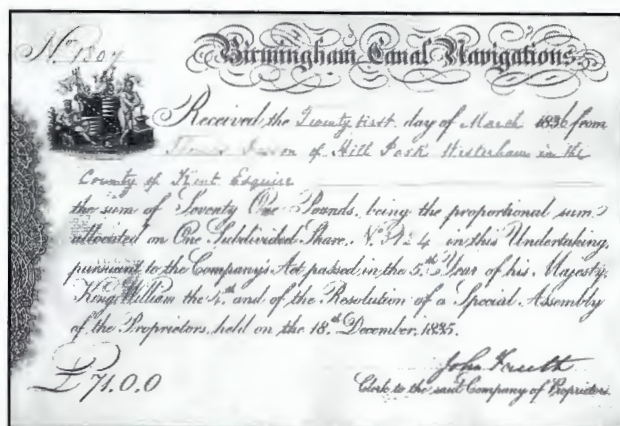 No. 1807
Birmingham Canal Navigations.
Received, the Twenty first day of March 1836 from
on of Hill Park Westerham in the
County of Kent Esquire
the sum of Seventy One Pounds, being the proportional sum
allocated on One Subdivided Share, No. 3124 in this Undertaking,
pursuant to the Company's Act, passed in the 5th Year of his Majesty,
King William the 4th and of the Resolution of a Special Assembly
of the Proprietors, held on the 18th December, 1835.
£71.0.0
John
Clerk to the said Company of Proprietors.